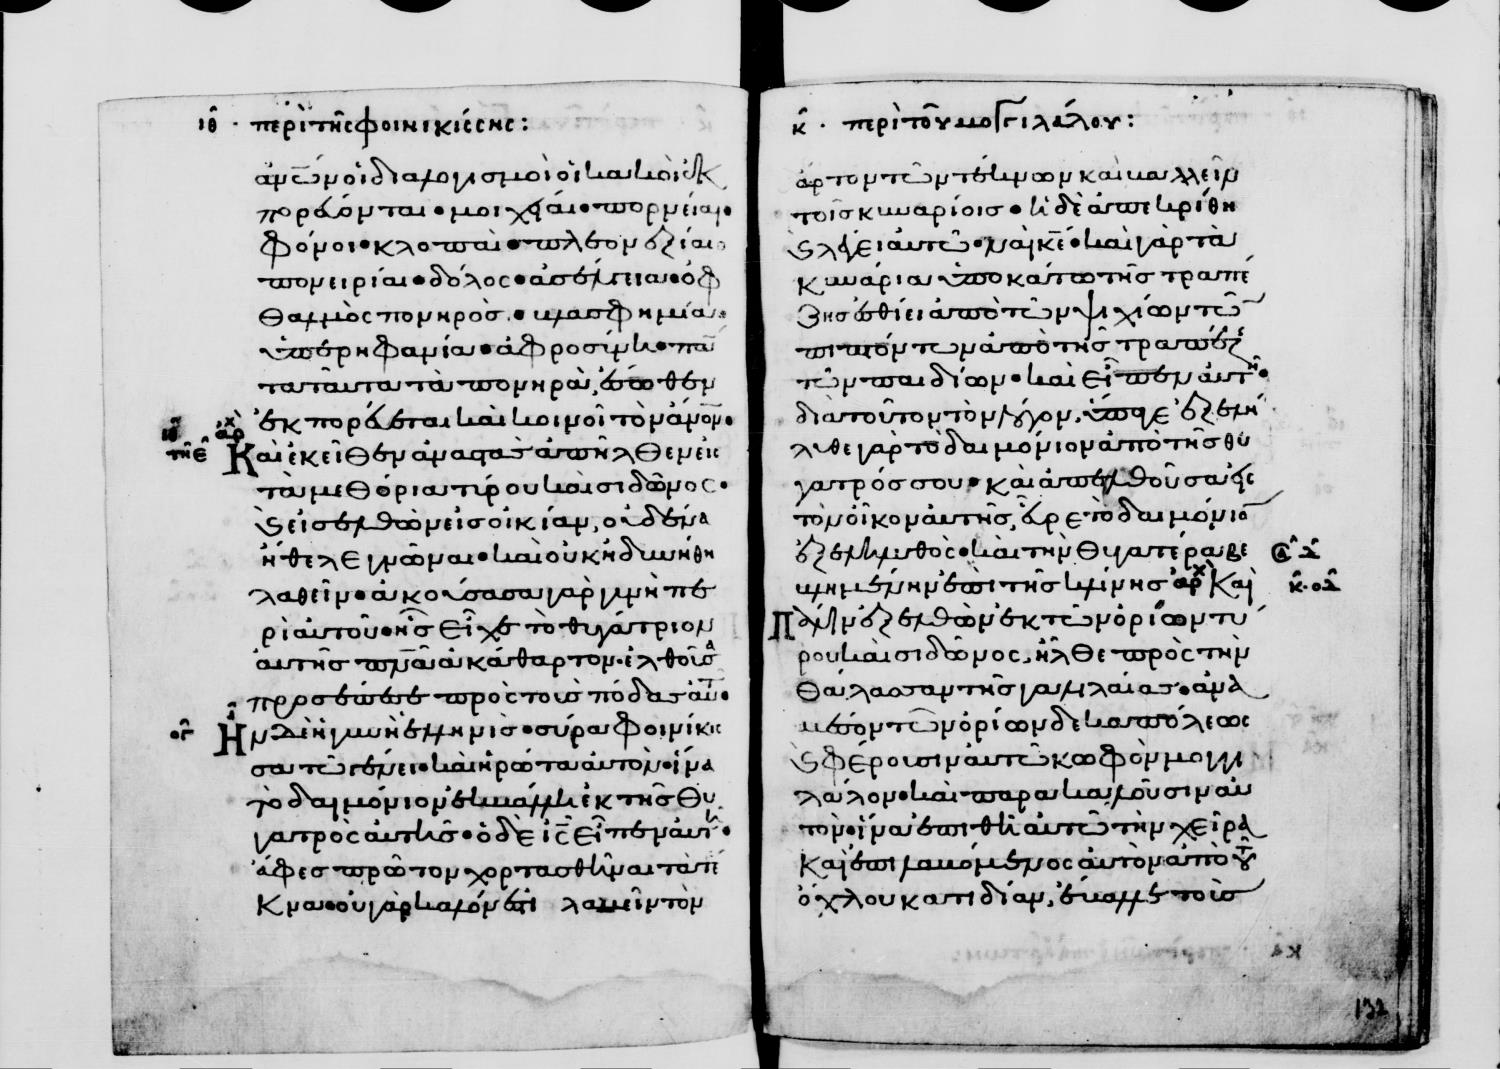 ιθ · περὶ τῆς φοινικίσσης:
ἀνων οἱ διαλογισμοὶ οἱ κακοὶ ἐκ
πορεύονται · μοιχεῖαι · πορνεῖαι ·
φόνοι · κλοπαὶ · πλεονεξίαι
πονειρίαι · δόλος · ἀσέλγεια · ὀφ
θαλμὸς πονηρὸσ · βλασφημία ·
ὑπερηφανία · ἀφροσύνη · πάν
τα ταῦτα τὰ πονηρὰ, ἔσωθεν
ἐκπορεύεται καὶ κοινοῖ τὸν ἄνον ·
Καὶ ἐκεῖθεν ἀναστὰσ ἀπῆλθεν εἰς
τὰ μεθόρια τύρου καὶ σιδῶνος ·
καὶ εἰσελθὼν εἰσ οἰκίαν, οὐδένα
ἤθελε γνῶναι · καὶ οὐκ ἠδυνήθη
λαθεῖν · ἀκούσασα γὰρ γυνὴ πε
ρὶ αὐτοῦ · ἧσ εἶχε τὸ θυγάτριον
αὐτῆσ πνα ἀκάθαρτον · ἐλθοῦσα
προσέπεσε πρὸς τοὺσ πόδασ αὐτ ·
Ἦν δὲ ἡ γυνὴ ἑλληνὶσ · σύρα φοινίκισ
σα τῶ γένει · καὶ ἠρώτα αὐτὸν · ἵνα
τὸ δαιμόνιον ἐκβάλλη ἐκ τῆσ θυ
γατρὸς αὐτῆσ · ὁ δὲ ις εἶπεν αὐτῆ ·
ἄφεσ πρῶτον χορτασθῆναι τὰ τέ
κνα · οὐ γὰρ καλόν ἐστι λαβεῖν τὸν
κ · περὶ τοῦ μογγιλάλου:
ἄρτον τῶν τέκνων καὶ βαλλεῖν
τοῖσ κυναρίοισ · ἡ δὲ ἀπεκρίθη
καὶ λέγει αὐτῶ · ναὶ κε · καὶ γὰρ τὰ
κυνάρια ὑποκάτω τῆσ τραπέ
ζησ ἐσθίει ἀπὸ τῶν ψιχίων τῶν
πιπτόντων ἀπὸ τῆσ τραπέζησ
τῶν παιδίων · καὶ εἶπεν αὐτῆ ·
διὰ τοῦτον τὸν λόγον, ὕπαγε ἐξελή
λυθε γὰρ τὸ δαιμόνιον ἀπὸ τῆσ θυ
γατρόσ σου · καὶ ἀπελθοῦσα εἰσ
τὸν οἶκον αὐτῆσ, εὗρε τὸ δαιμόνιον
ἐξεληλυθὸς · καὶ τὴν θυγατέρα βε
βλημένην ἐπὶ τῆσ κλίνησ Καὶ
Πάλιν ἐξελθὼν ἐκ τῶν ὁρίων τύ
ρου καὶ σιδῶνος, ἦλθε πρὸς τὴν
θάλασσαν τῆσ γαλιλαίασ · ἀνὰ
μέσον τῶν ὁρίων δεκαπόλεως
καὶ φέρουσιν αὐτῶ κωφὸν μογγι
λάλον · καὶ παρακαλοῦσιν αὐ
τὸν · ἵνα ἐπιθῆ αὐτῶ τὴν χεῖρα
Καὶ ἐπιλαβόμενος αὐτὸν ἀπὸ τοῦ
ὄχλου κατιδίαν, ἔβαλλε τοὺσ
132